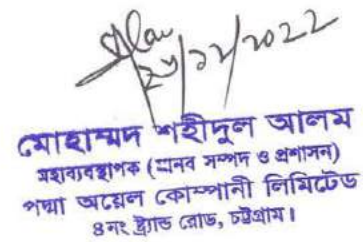 ২৮/১২/২০২২
মোহাম্মদ শহীদুল আলম
মহাব্যবস্থাপক (মানব সম্পদ ও প্রশাসন)
পদ্মা অয়েল কোম্পানী লিমিটেড
৪নং ষ্ট্র্যান্ড রোড, চট্টগ্রাম।